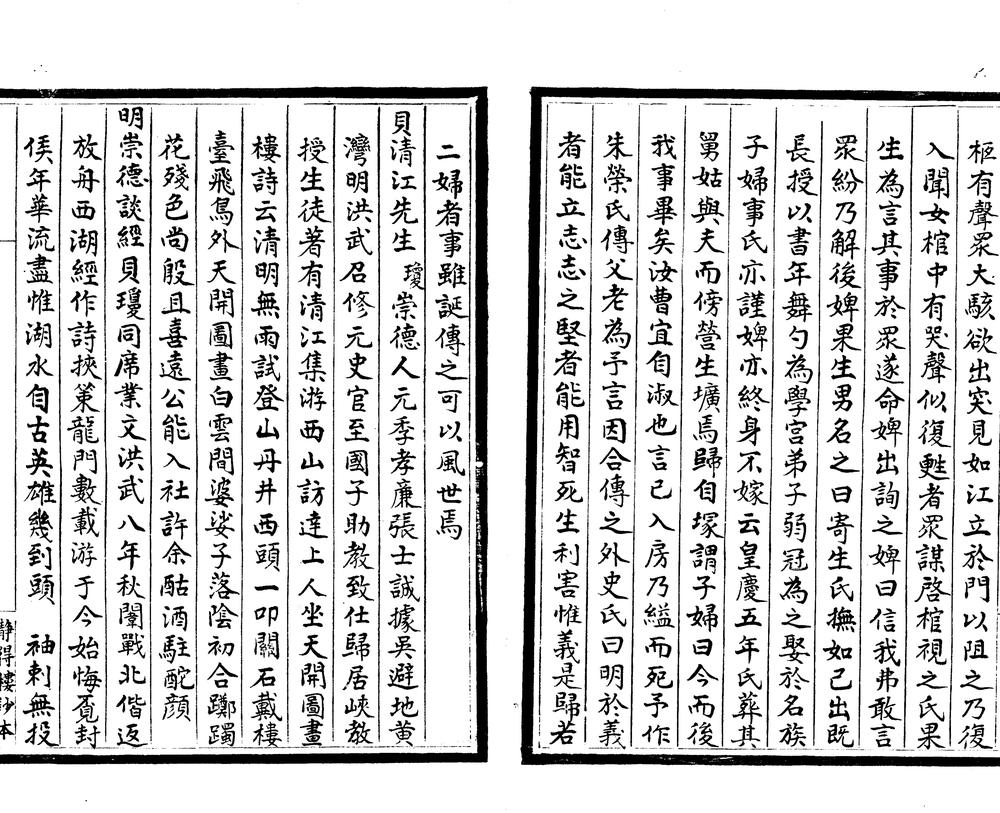 柩有聲眾大駭欲出突見如江立於門以阻之乃復
入聞女棺中有哭聲似復甦者眾謀啓棺視之氏果
生為言其事於眾遂命婢出詢之婢曰信我弗敢言
眾紛乃解後婢果生男名之曰寄生氏撫如己出既
長授以書年舞勺為學宮弟子弱冠為之娶於名族
子婦事氏亦謹婢亦終身不嫁云皇慶五年氏葬其
舅姑與夫而傍營生壙焉歸自塚謂子婦曰今而後
我事畢矣汝曹宜自淑也言已入房乃縊而死予作
朱榮氏傳父老為予言因合傳之外史氏曰明於義
者能立志志之堅者能用智死生利害惟義是歸若
二婦者事雖誕傳之可以風世焉
貝清江先生瓊崇德人元季孝廉張士誠據吳避地黃
灣明洪武召修元史官至國子助教致仕歸居峽教
授生徒著有清江集游西山訪達上人坐天開圖畫
樓詩云清明無雨試登山丹井西頭一叩關石戴樓
臺飛鳥外天開圖畫白雲間婆娑子落陰初合躑躅
花殘色尚殷且喜遠公能入社許余酤酒駐酡顏
明崇德談經貝瓊同席業文洪武八年秋闈戰北偕返
放舟西湖經作詩挾策龍門數載游于今始悔覓封
侯年華流盡惟湖水自古英雄幾到頭 袖刺無投
靜得樓鈔本